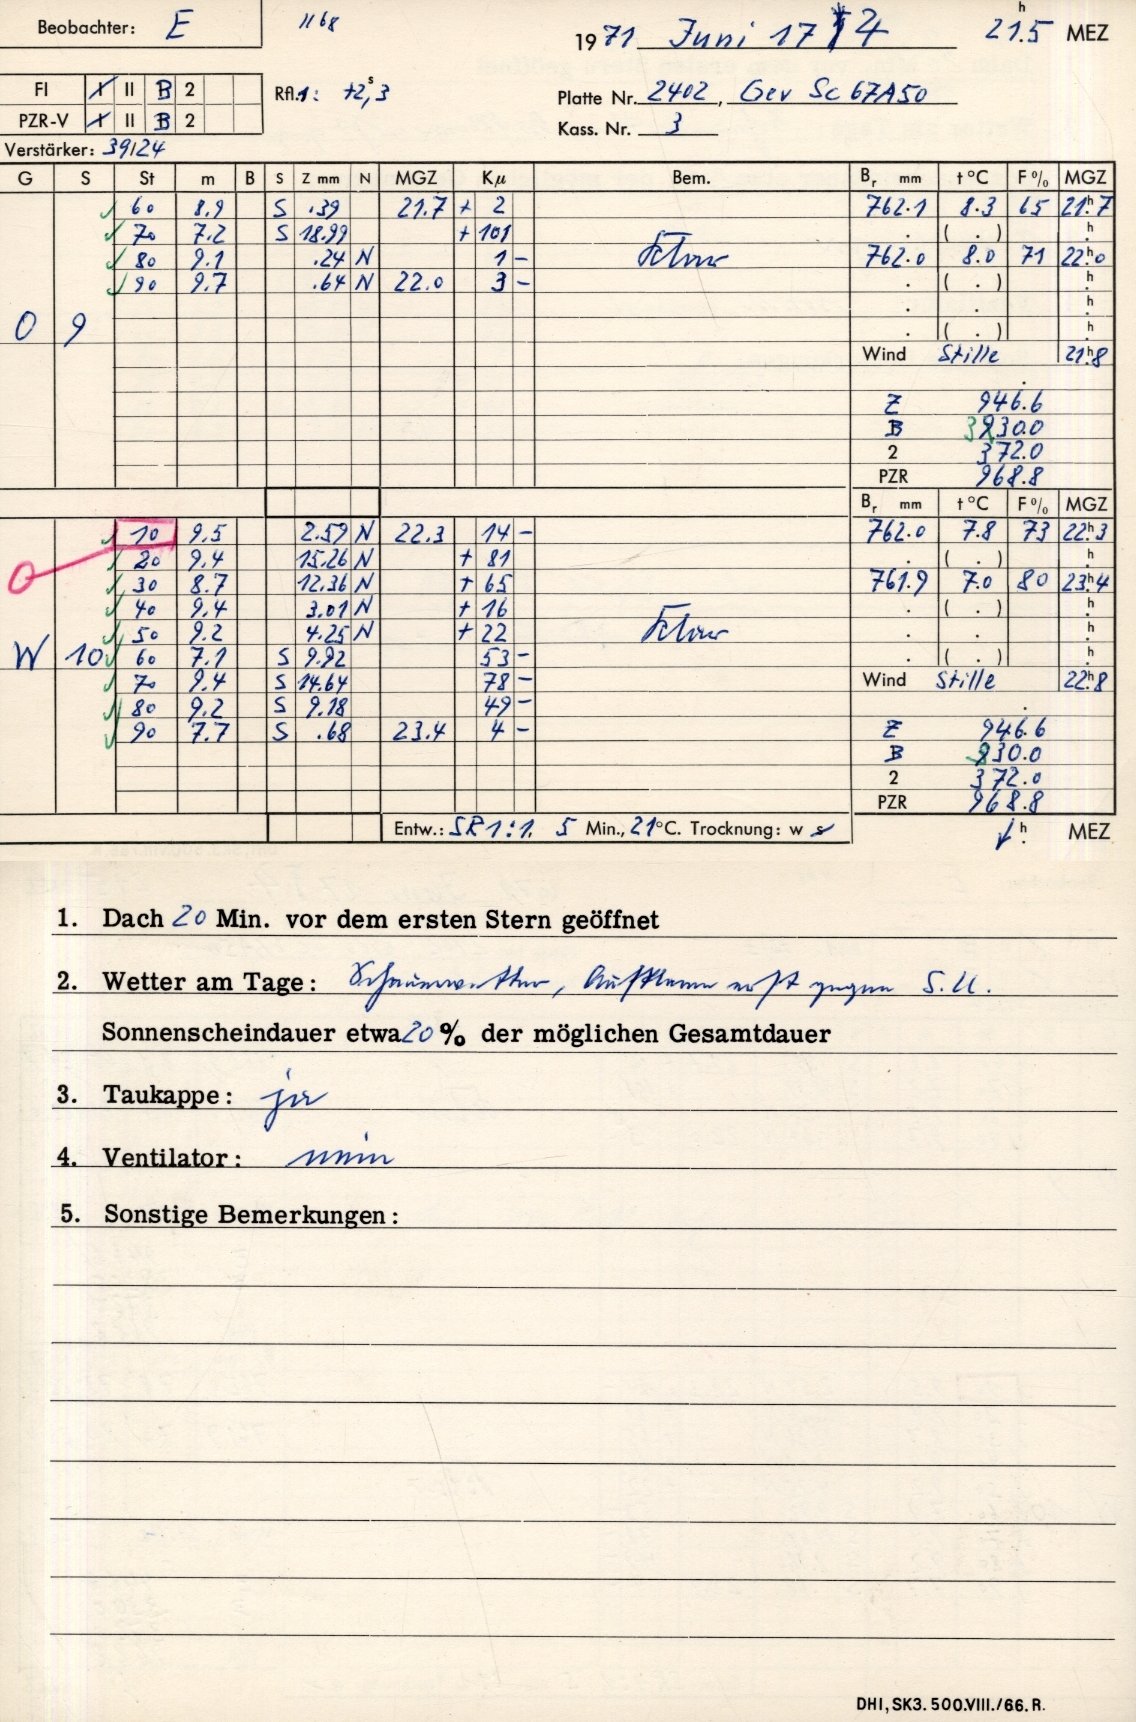 Beobachter: E
1168
1971 Juni 17 4 21.5 h MEZ
FI I II B 2
PZR-V I II B 2
Rfl.1: +2,3 s
Platte Nr. 2402, Gev Sc 67A50
Kass. Nr. 3
Verstärker: 39/24
G S St m B S Z mm N MGZ Kμ Bem. Br mm t °C F % MGZ
60 8.9 S .39 21.7 + 2 762.1 8.3 65 21h7
70 7.2 S 18.99 + 101 . ( . ) h
80 9.1 .24 N 1 - Klar 762.0 8.0 71 22h0
90 9.7 .64 N 22.0 3 - . ( . ) h
O 9 . . h
. ( . ) h
Wind Stille 21h8
Z 946.6
B 330.0
2 372.0
PZR 968.8
Br mm t °C F % MGZ
10 9.5 2.59 N 22.3 14 - 762.0 7.8 73 22h3
20 9.4 15.26 N + 81 . ( . ) h
30 8.7 12.36 N + 65 761.9 7.0 80 23h4
40 9.4 3.01 N + 16 . ( . ) h
50 9.2 4.25 N + 22 Klar . . h
W 10 60 7.1 S 9.92 53 - . ( . ) h
70 9.4 S 14.64 78 - Wind Stille 22h8
80 9.2 S 9.18 49 -
90 7.7 S .68 23.4 4 - Z 946.6
B 330.0
2 372.0
PZR 968.8
Entw.: SR 1:1. 5 Min., 21°C. Trocknung: w s h MEZ
1. Dach 20 Min. vor dem ersten Stern geöffnet
2. Wetter am Tage: Schauerwetter, Aufklaren erst gegen S.U.
Sonnenscheindauer etwa 20 % der möglichen Gesamtdauer
3. Taukappe: ja
4. Ventilator: nein
5. Sonstige Bemerkungen:
DHI, SK3. 500.VIII./66. R.